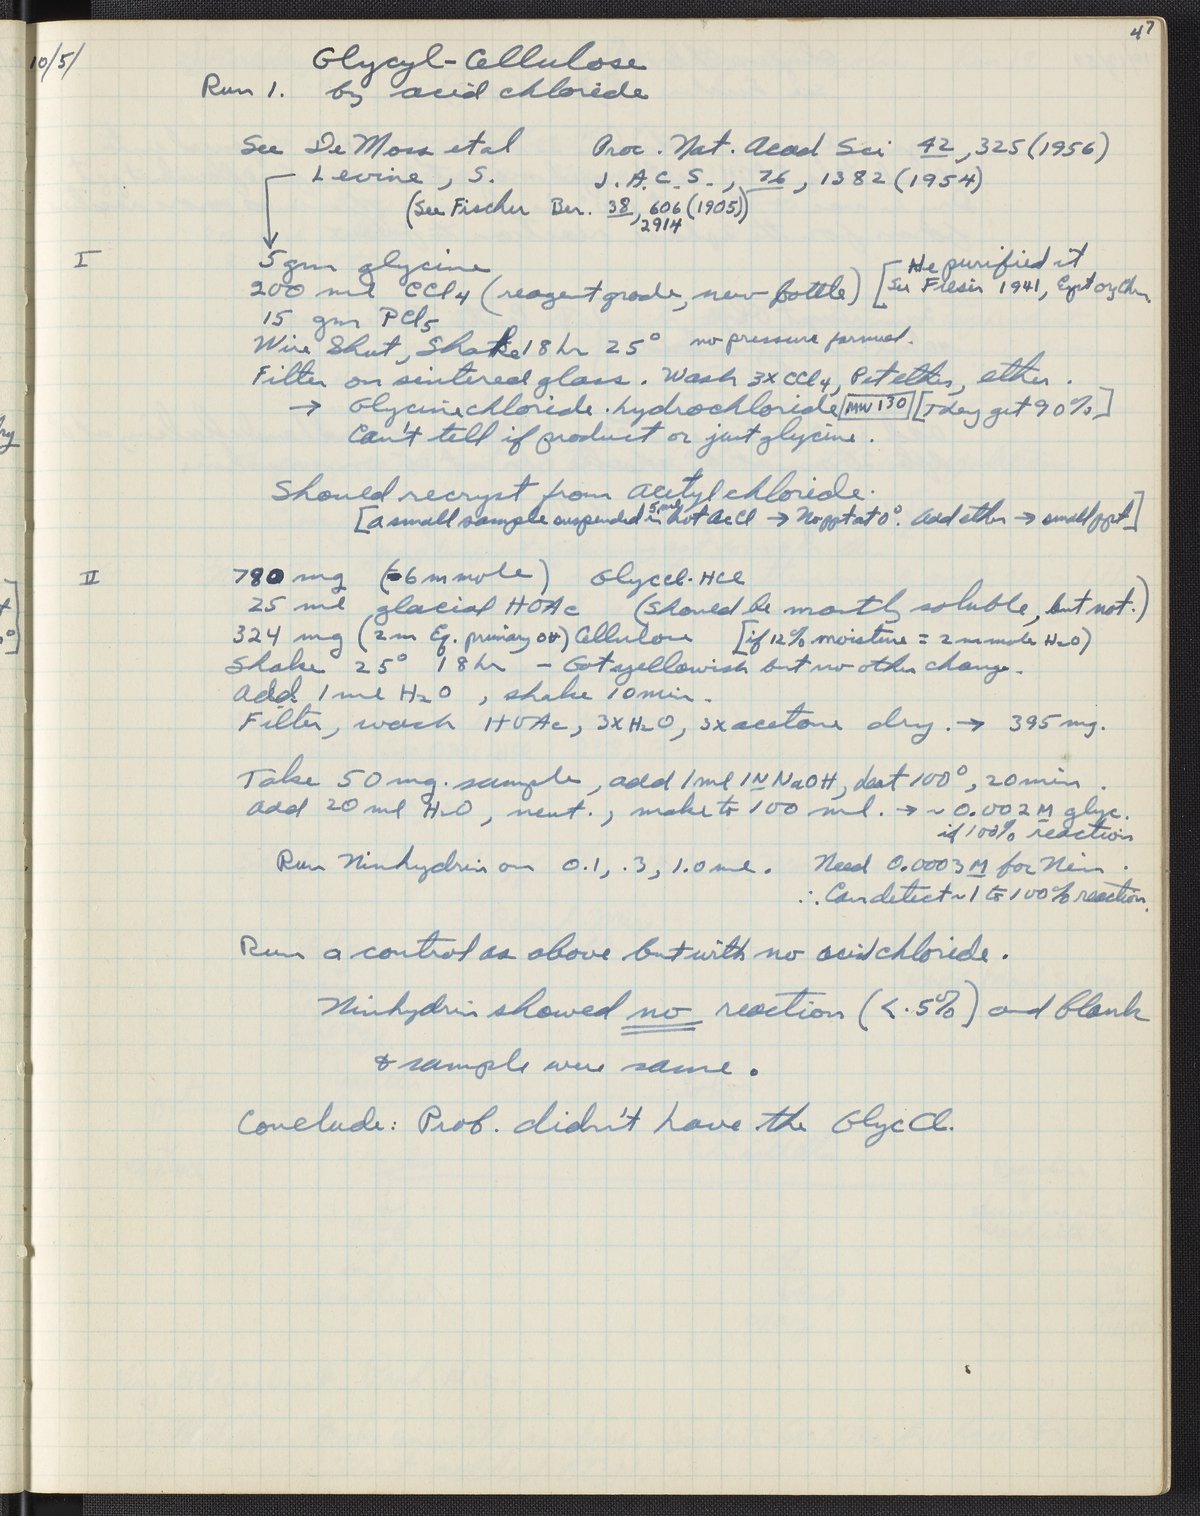 47
10/5/
Glycyl-Cellulose
Run 1. by acid chloride
See DeMoss et al Proc. Nat. Acad Sci 42, 325 (1956)
Levine, S. J.A.C.S., 76, 1382 (1954)
(See Fischer Ber. 38, 606 (1905))
2914
I
5 gm glycine
200 ml CCl4 (reagent grade, new bottle) [He purified it
See Fieser 1941, Expt Org Chem
15 gm PCl5
Wire Shut, Shake 18 hr 25° no pressure formed.
Filter on sintered glass. Wash 3x CCl4, Pet ether, ether.
→ Glycine chloride · hydrochloride MW 130 [They get 90%]
Can't tell if product or just glycine.
Should recryst from acetyl chloride.
[a small sample suspended in 5 ml hot AcCl → No ppt at 0°. Add ether → small ppt]
II
780 mg (6 m mole) GlycCl·HCl
25 ml glacial HOAc (should be mostly soluble, but not.)
324 mg (2 m Eq. primary OH) Cellulose [if 12% moisture = 2 m mole H2O)
Shake 25° 18 hr – Got yellowish but no other change.
Add 1 ml H2O, shake 10 min.
Filter, wash HOAc, 3x H2O, 3x acetone dry. → 395 mg.
Take 50 mg. sample, add 1 ml 1N NaOH, heat 100°, 20 min.
Add 20 ml H2O, neut., make to 100 ml. → ~ 0.002 M glyc.
if 100% reaction
Run Ninhydrin on 0.1, .3, 1.0 ml. Need 0.0003 M for Nin.
∴ Can detect ~1 to 100% reaction.
Run a control as above but with no acid chloride.
Ninhydrin showed no reaction (<.5%) and blank
& sample were same.
Conclude: Prob. didn't have the GlycCl.